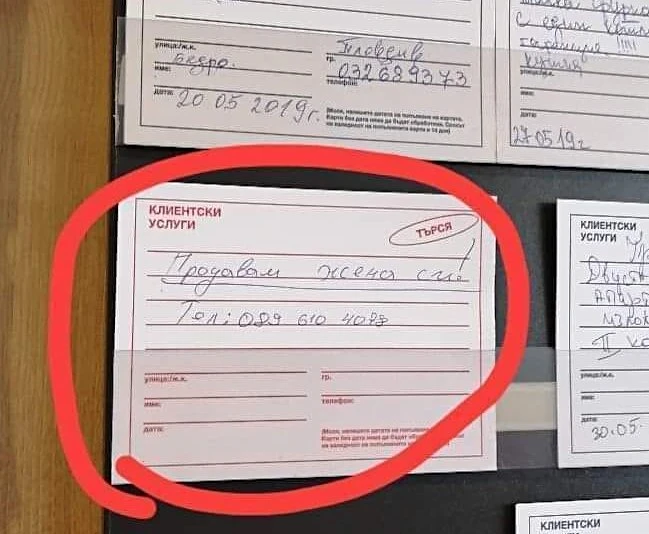 с един
гаранция !!!!!
улица:/ж.к.
Пловдив
гр.
бедро.
име:
032 689373
телефон:
дата:
20 05 2019г.
(Моля, напишете датата на попълване на картата.
Карти без дата няма да бъдат обработени. Срокът
на валидност на попълнената карта е 14 дни)
улица:/ж.к.
име:
дата:
27.05.19г
КЛИЕНТСКИ
УСЛУГИ
ТЪРСЯ
Продавам жена си!
Тел: 089 610 4098
улица:/ж.к.
гр.
име:
телефон:
дата:
(Моля, напишете датата на попълване
Карти без дата няма да бъдат обработ
на валидност на попълнената карта е
КЛИЕНТСКИ
УСЛУГИ
Двуста
апарт
II
улица:/ж.к.
име:
дата:
30.05.
КЛИЕНТСКИ